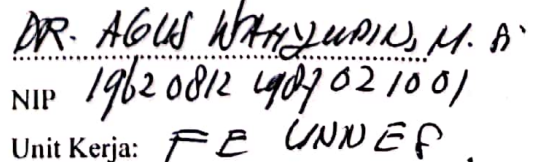 DR. AGUS WAHYUDIN, M. A.
NIP 19620812 198702 1001
Unit Kerja: FE UNNES.